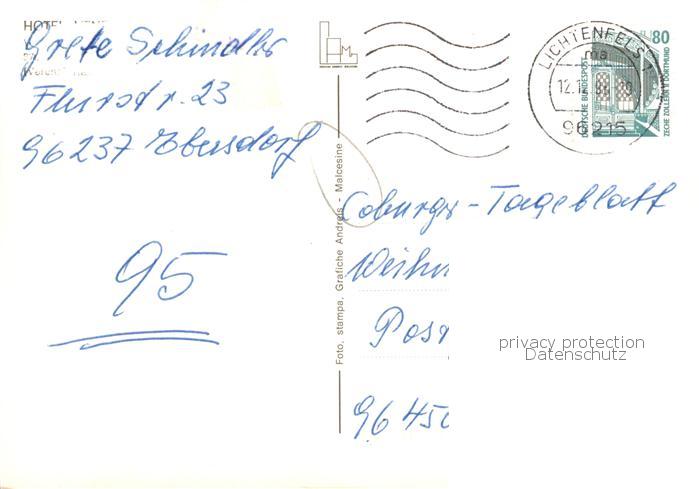 HOTEL
Grete Schindler
Flurstr. 23
96237 Ebersdorf
95
HLM
Foto, stampa, Grafiche Andreis - Malcesine
LICHTENFELS
ma
12.
96215
80
DEUTSCHE BUNDESPOST
ZECHE ZOLLERN II DORTMUND
Coburger - Tageblatt
Weihn
Post
96 450
privacy protection
Datenschutz